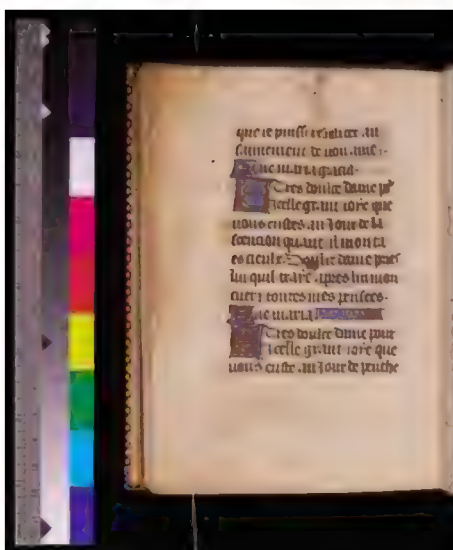 que ie puisse resister au
sauuement de mon ame.
Aue maria gracia.
Tres doulce dame pr
icelle grant ioie que
uous eustes au iour de la
scencion quant il monta
es cieulx. Doulce dame pries
lui quil traie apres lui mon
cuer ⁊ toutes mes pensees.
Aue maria
Tres doulce dame pour
icelle grant ioie que
uous eustes au iour de penthe